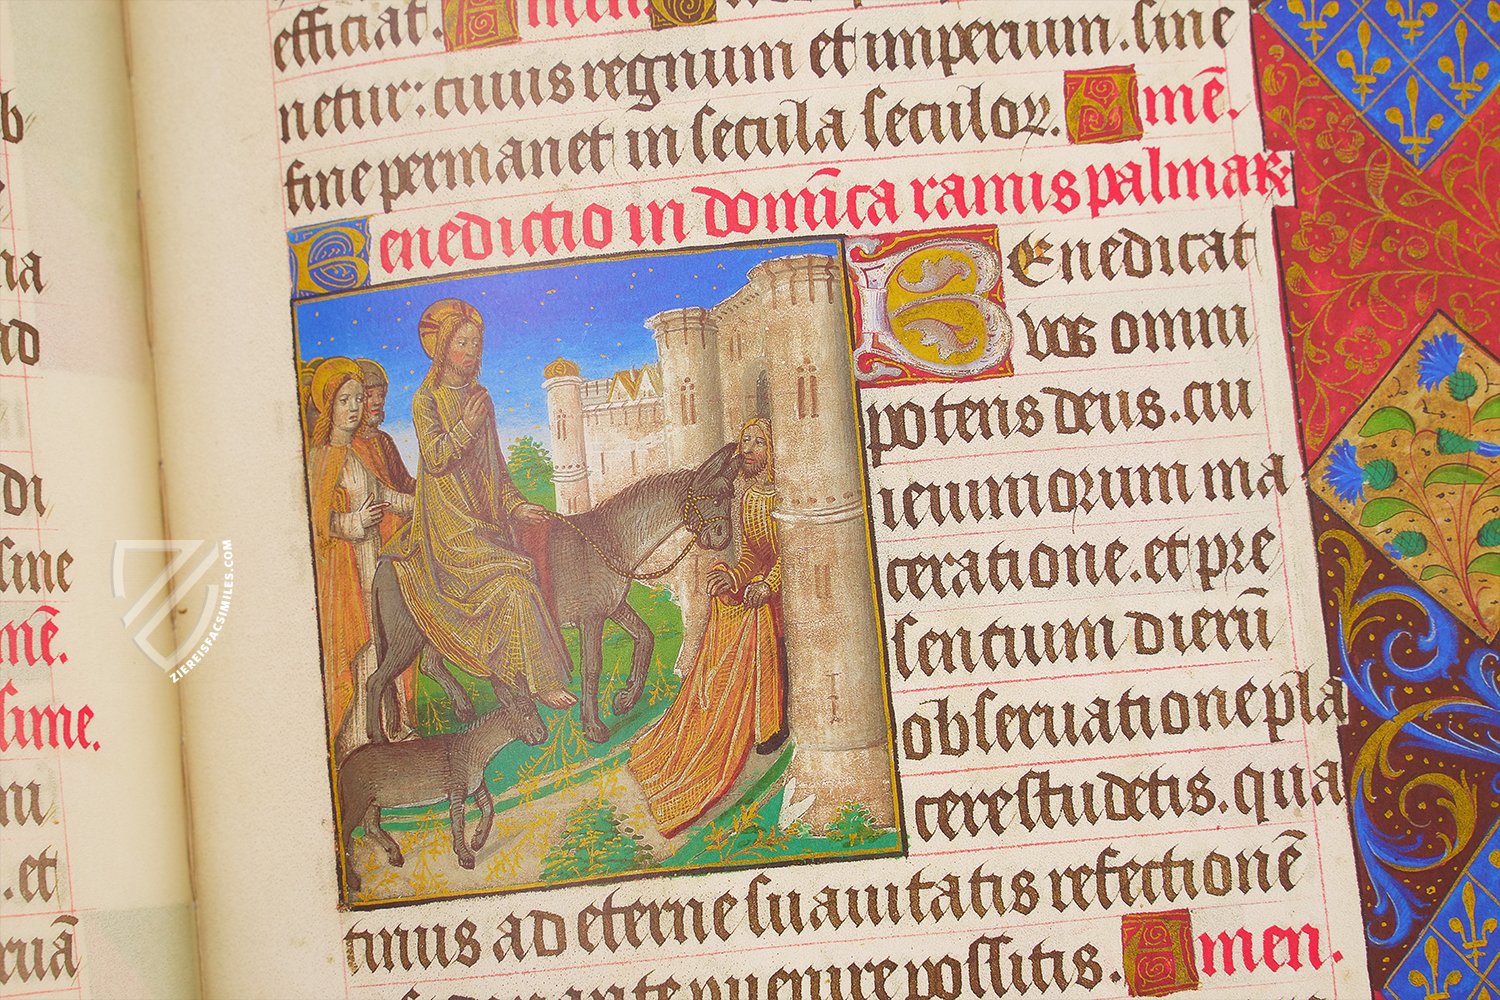 efficiat. Amen.
netur: cuius regnum et imperium. sine
fine permanet in secula seculoꝝ. Amē.
Benedictio in domīca ramis palmaꝝ
BEnedicat
vos omni
potens deus. cui
ieiuniorum ma
ceratione. et pre
sentium dierū
obseruatione pla
cere studetis. qua
tinus ad eterne suauitatis refectionē
uenire possitis. Amen.
b
na
ad
di
sine
mē.
sime.
ni
. et
ruā
ZIEREISFACSIMILES.COM